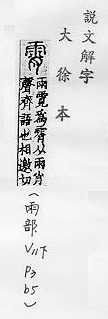 説文解字
大徐本
霄
雨霓為霄从雨肖
聲齊語也相邀切
(雨部 V11下 P3 b5)